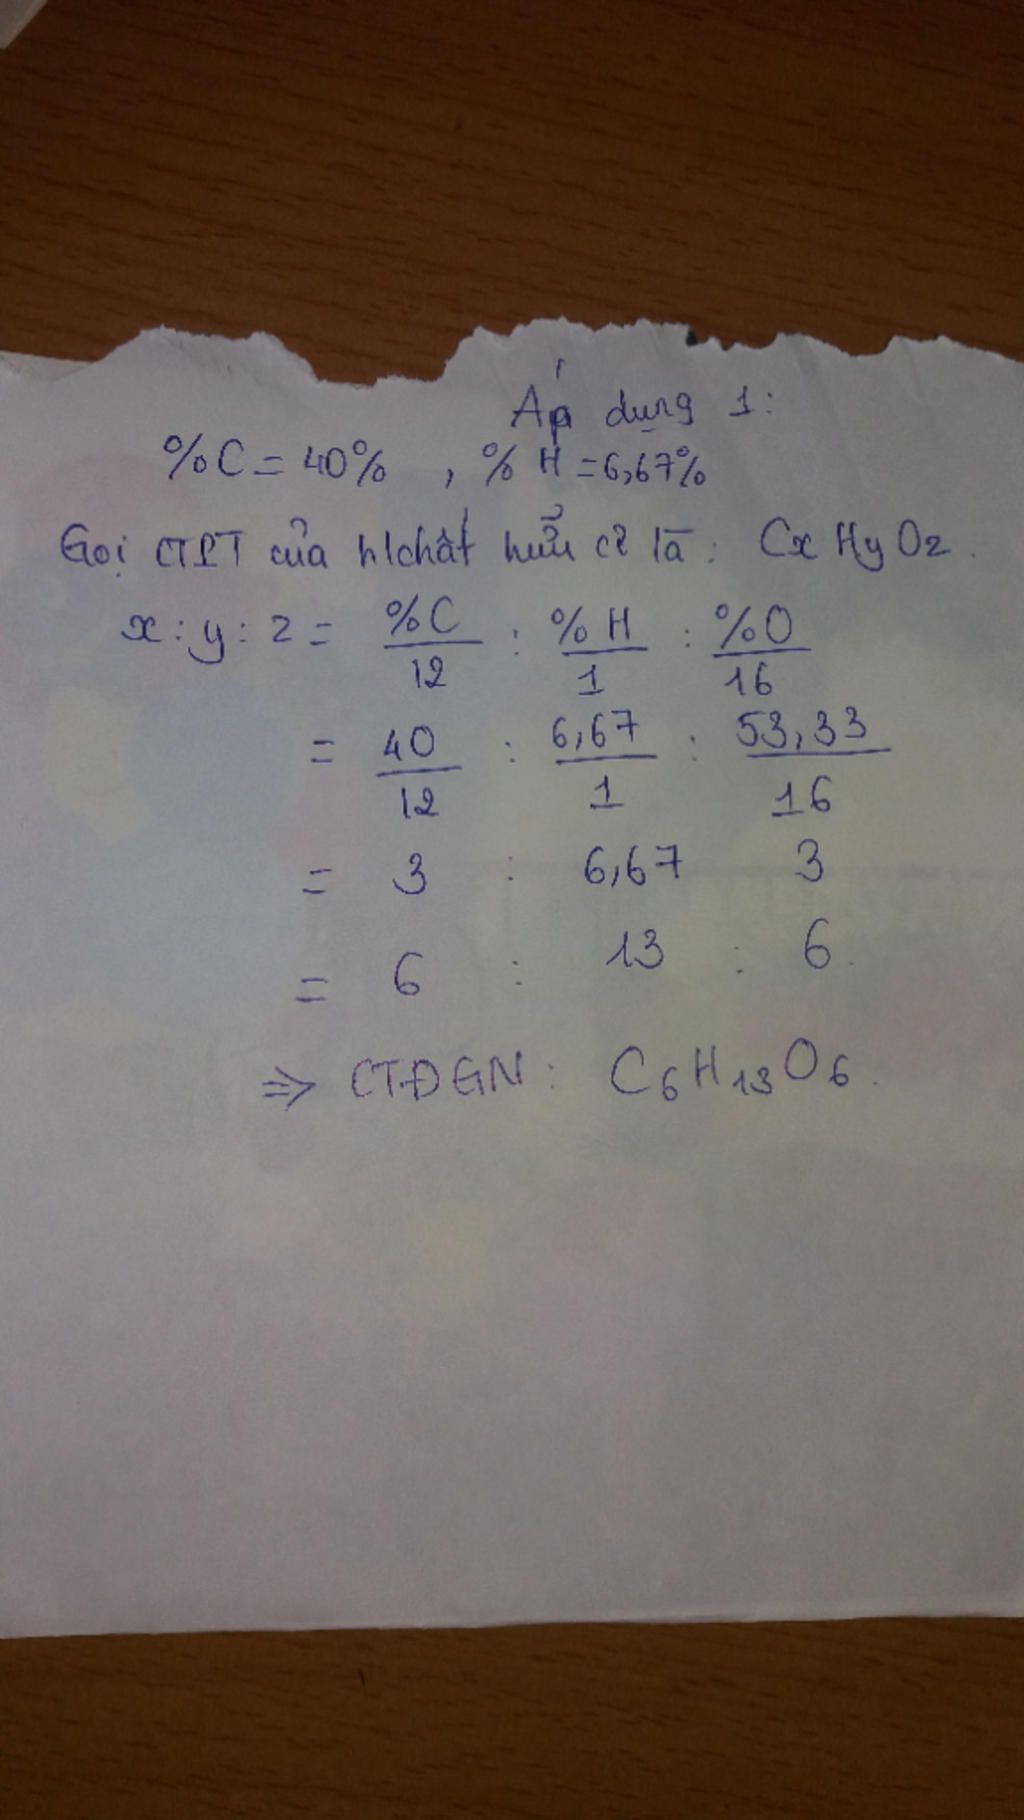 Áp dụng 1:
%C = 40% , % H = 6,67%
Gọi CTPT của h/chất hữu cơ là: CxHyOz.
x : y : z = %C/12 : %H/1 : %O/16
= 40/12 : 6,67/1 : 53,33/16
= 3 : 6,67 3
= 6 : 13 : 6.
=> CTĐGN: C6H13O6.